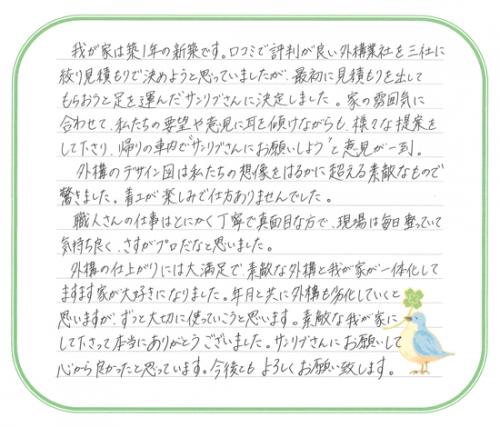 我が家は築1年の新築です。口コミで評判が良い外構業社を三社に
絞り見積もりで決めようと思っていましたが、最初に見積もりを出して
もらおうと足を運んだサンリブさんに決定しました。家の雰囲気に
合わせて、私たちの要望や意見に耳を傾けながらも、様々な提案を
して下さり、帰りの車内で“サンリブさんにお願いしよう”と意見が一到。
外構のデザイン図は私たちの想像をはるかに超える素敵なもので
驚きました。着工が楽しみで仕方ありませんでした。
職人さんの仕事はとにかく丁寧で真面目な方で、現場は毎日整っていて
気持ち良く、さすがプロだなと思いました。
外構の仕上がりには大満足で素敵な外構と我が家が一体化して
ますます家が大好きになりました。年月と共に外構も劣化していくと
思いますが、ずっと大切に使っていこうと思います。素敵な我が家に
して下さって本当にありがとうございました。サンリブさんにお願いして
心から良かったと思っています。今後とも よろしくお願い致します。